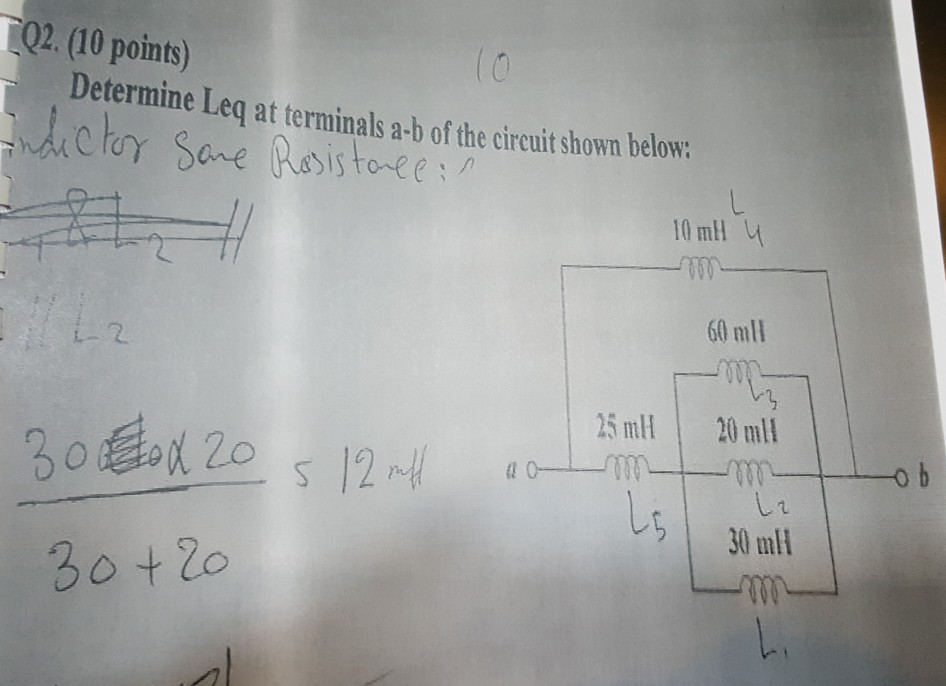 Q2. (10 points)
10
Determine Leq at terminals a-b of the circuit shown below:
Inductor Same Resistance :
L2
30 x 20
30 + 20
= 12 mH
10 mH L4
60 mH
L3
25 mH
20 mH
a
b
L5
L2
30 mH
L1